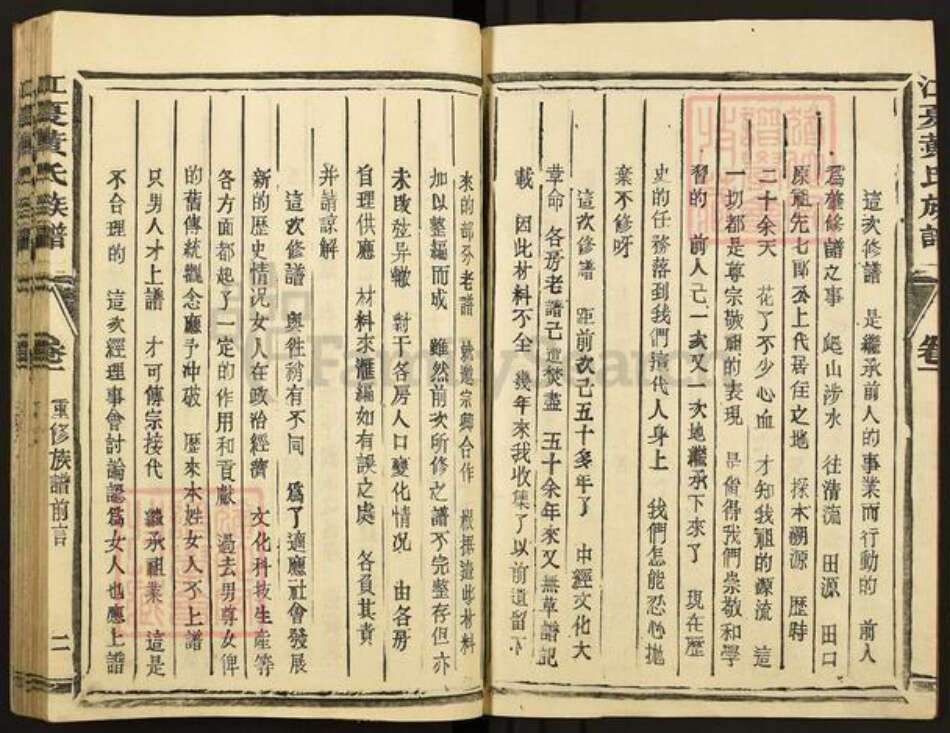 這次修譜 是繼承前人的事業而行動的 前人
爲雄修譜之事 爬山涉水 往清流 田源 田口
原祖先七郎公上代居住之地 探本溯源 歷時
二十余天 花了不少心血 才知我祖的源流 這
一切都是尊宗敬祖的表現 是值得我們崇敬和學
習的 前人己一次又一次地繼承下來了 現在歷
史的任務落到我們這代人身上 我們怎能忍心拋
棄不修呀
這次修譜 距前次己五十多年了 中經文化大
革命 各房老譜己遭焚盡 五十余年來又無草譜記
載 因此材料不全 幾年來我收集了以前遺留下
來的部分老譜 姚邀宗卿合作 根據這些材料
加以整編而成 雖然前次所修之譜不完整存但亦
未改弦异轍 對于各房人口變化情况 由各房
自理供應 材料來滙編如有誤之處 各負其責
并請諒解
這次修譜 與徃稍有不同 爲了適應社會發展
新的歷史情况女人在政治經濟 文化科技生産等
各方面都起了一定的作用和貢獻 過去男尊女俾
的舊傳統觀念應予冲破 歷來本姓女人不上譜
只男人才上譜 才可傳宗接代 繼承祖業 這是
不合理的 這次經理事會討論認爲女人也應上譜
江夏黄氏族譜 卷一 重修族譜前言 二
江夏黄氏族譜 卷
FamilySearch